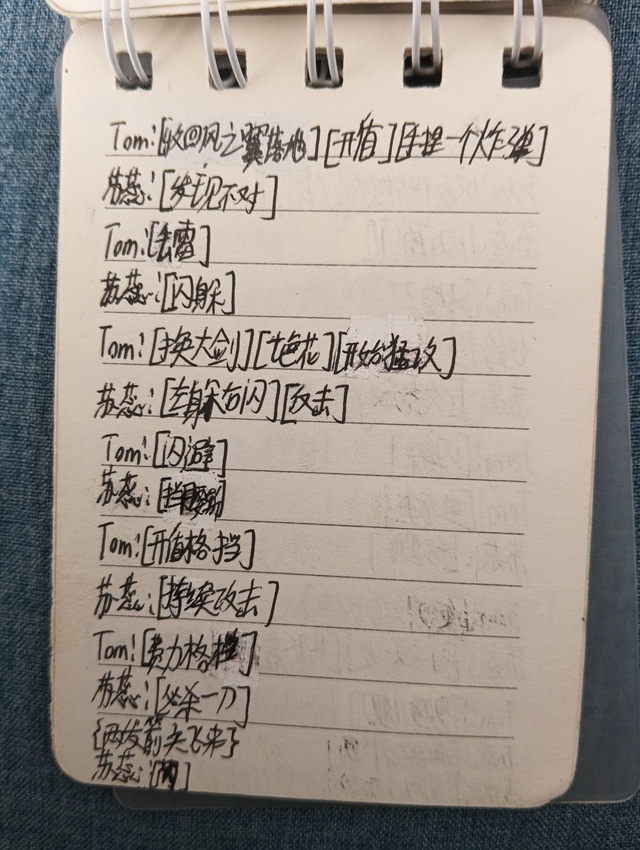 Tom:[收回风之翼落地][开盾][手捏一个炸弹]
苏蕊:[发现不对]
Tom:[丢雷]
苏蕊:[闪躲]
Tom:[换大剑][七色花][开始猛攻]
苏蕊:[左躲右闪][攻击]
Tom:[闪避]
苏蕊:
Tom:[开盾格挡]
苏蕊:[持续攻击]
Tom:[费力格挡]
苏蕊:[必杀一刀]
{两发箭矢飞来}
苏蕊: